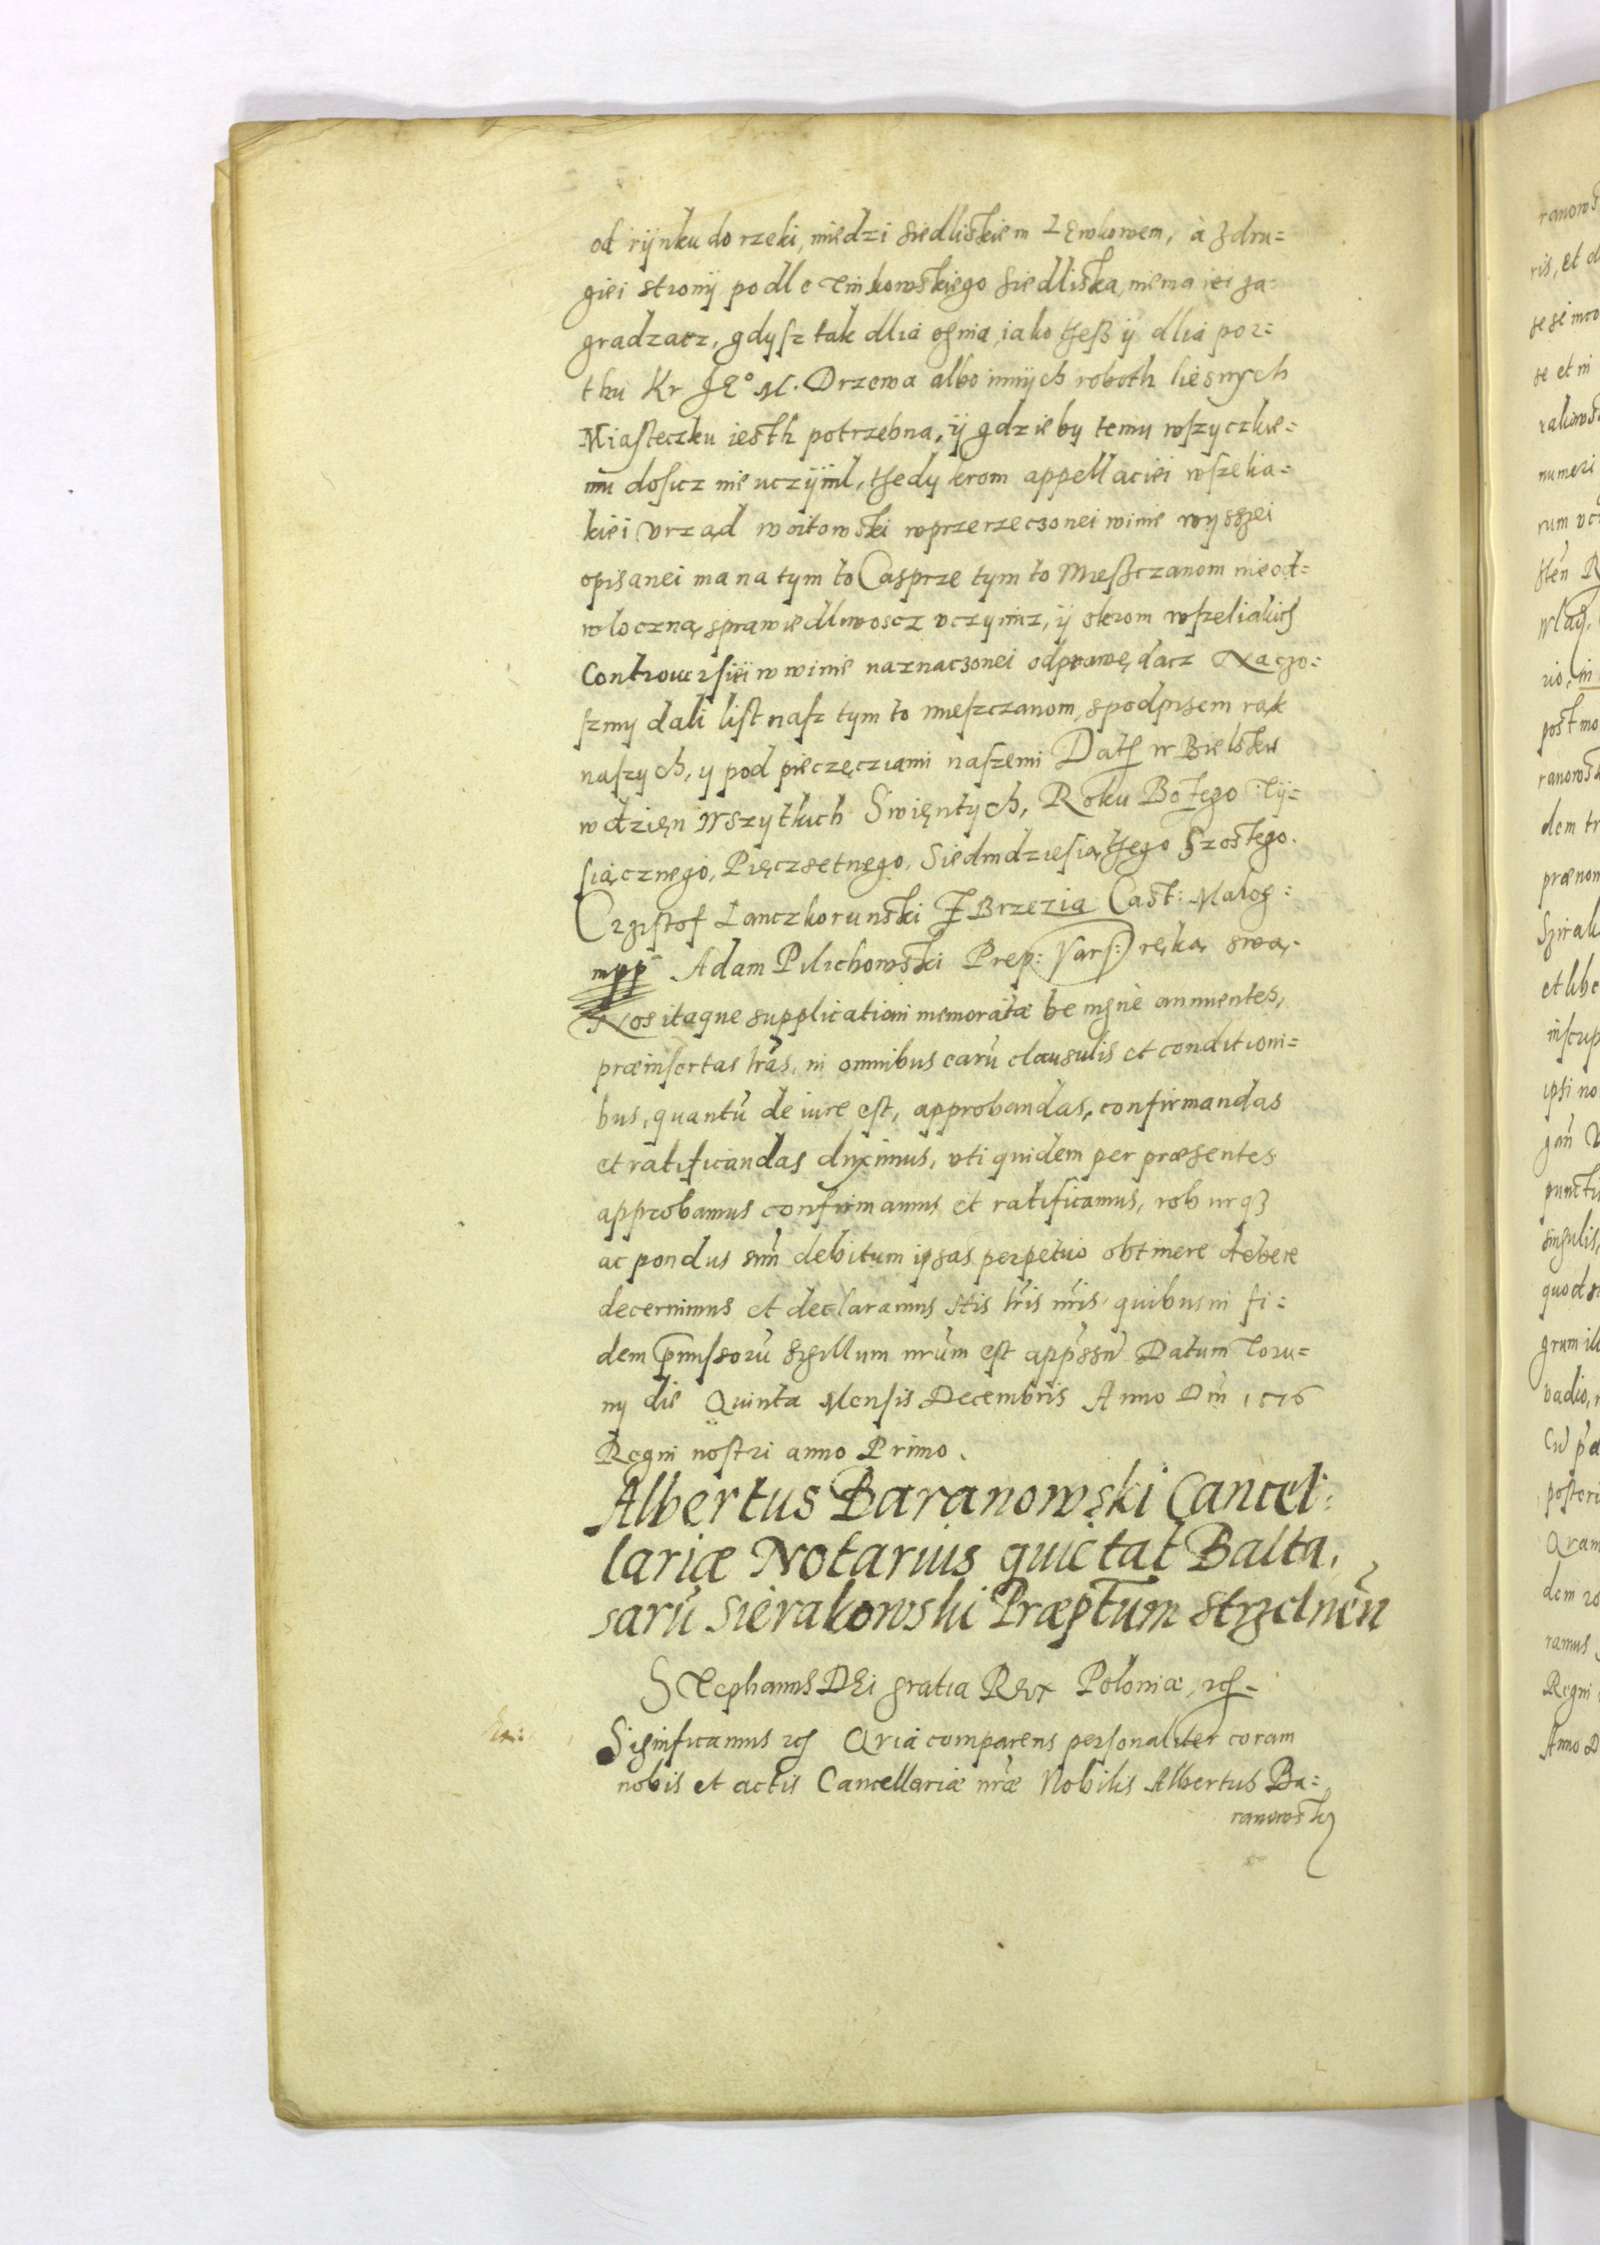 od rÿnku do rzeki, miedzi siedliskiem Lewkowem, à z dru=
giei stronÿ podle Tinkowskiego siedliska, niema iei za=
gradzacz, gdysz tak dlia ognia, iako thesz ÿ dlia por=
thu Kr JE° M. Drzewa albo innÿch roboth liesnych
Miasteczku iesth potrzebna, ÿ gdzieby temu wszyczkie=
mu dosicz nie uczÿnil, thedy krom appellaciei wszelia=
kiei vrząd woitowski w przerzeczonei winie wysszei
opisanei ma na tym to Casprze tym to Miesczanom nieod=
wloczną sprawiedliwoscz vczynicz, ÿ okrom wszeliakich
Controuersiei w winie naznaczonei odprawę dacz Na czo=
szmy dali list nasz tym to mieszczanom, s podpisem rąk
naszych, y pod pieczęcziami naszemi Dath w Bielsku
w dzień Wszytkich Swiętych, Roku Bożego Tÿ=
siącznego, Pięczsetnego, Siedmdziesiąthego Szostego.
Crzistof Lanczkorunski Z Brzezia Cast: Malog:
mpp Adam Pilichowski Prep: Vars: ręką swą.
Nos itaque supplicationi memoratæ benignè annuentes,
præinsertas lr̃as, in omnibus earũ clausulis et conditioni=
bus, quantũ de iure est, approbandas, confirmandas
et ratificandas duximus, uti quidem per præsentes
approbamus confirmamus et ratificamus, roburqꝫ
ac pondus suũ debitum ipsas perpetuo obtinere debere
decernimus et declaramus His lr̃is nr̃is, quibus in fi=
dem p̃missorũ Sigillum nr̃um est app̃ssũ Datum Toru=
ny die Quinta Mensis Decembris Anno Dnĩ 1576
Regni nostri anno Primo.
Albertus Baranowski Cancel=
lariæ Notarius quietat Balta,
sarũ Sierakowski Præp̃tum Strzelneñ
Stephanus DEi gratia Rex Poloniæ, rch=
Significamus rch Qvia comparens personaliter coram
nobis et actis Cancellariæ nr̃æ Nobilis Albertus Ba=
ranowskj